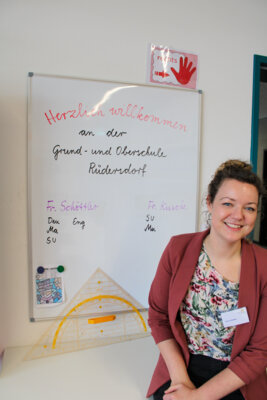 Herzlich willkommen
an der
Grund- und Oberschule
Rüdersdorf
Fr. Schöttler
Deu Eng
Ma
SU
Fr.
SU
Ma